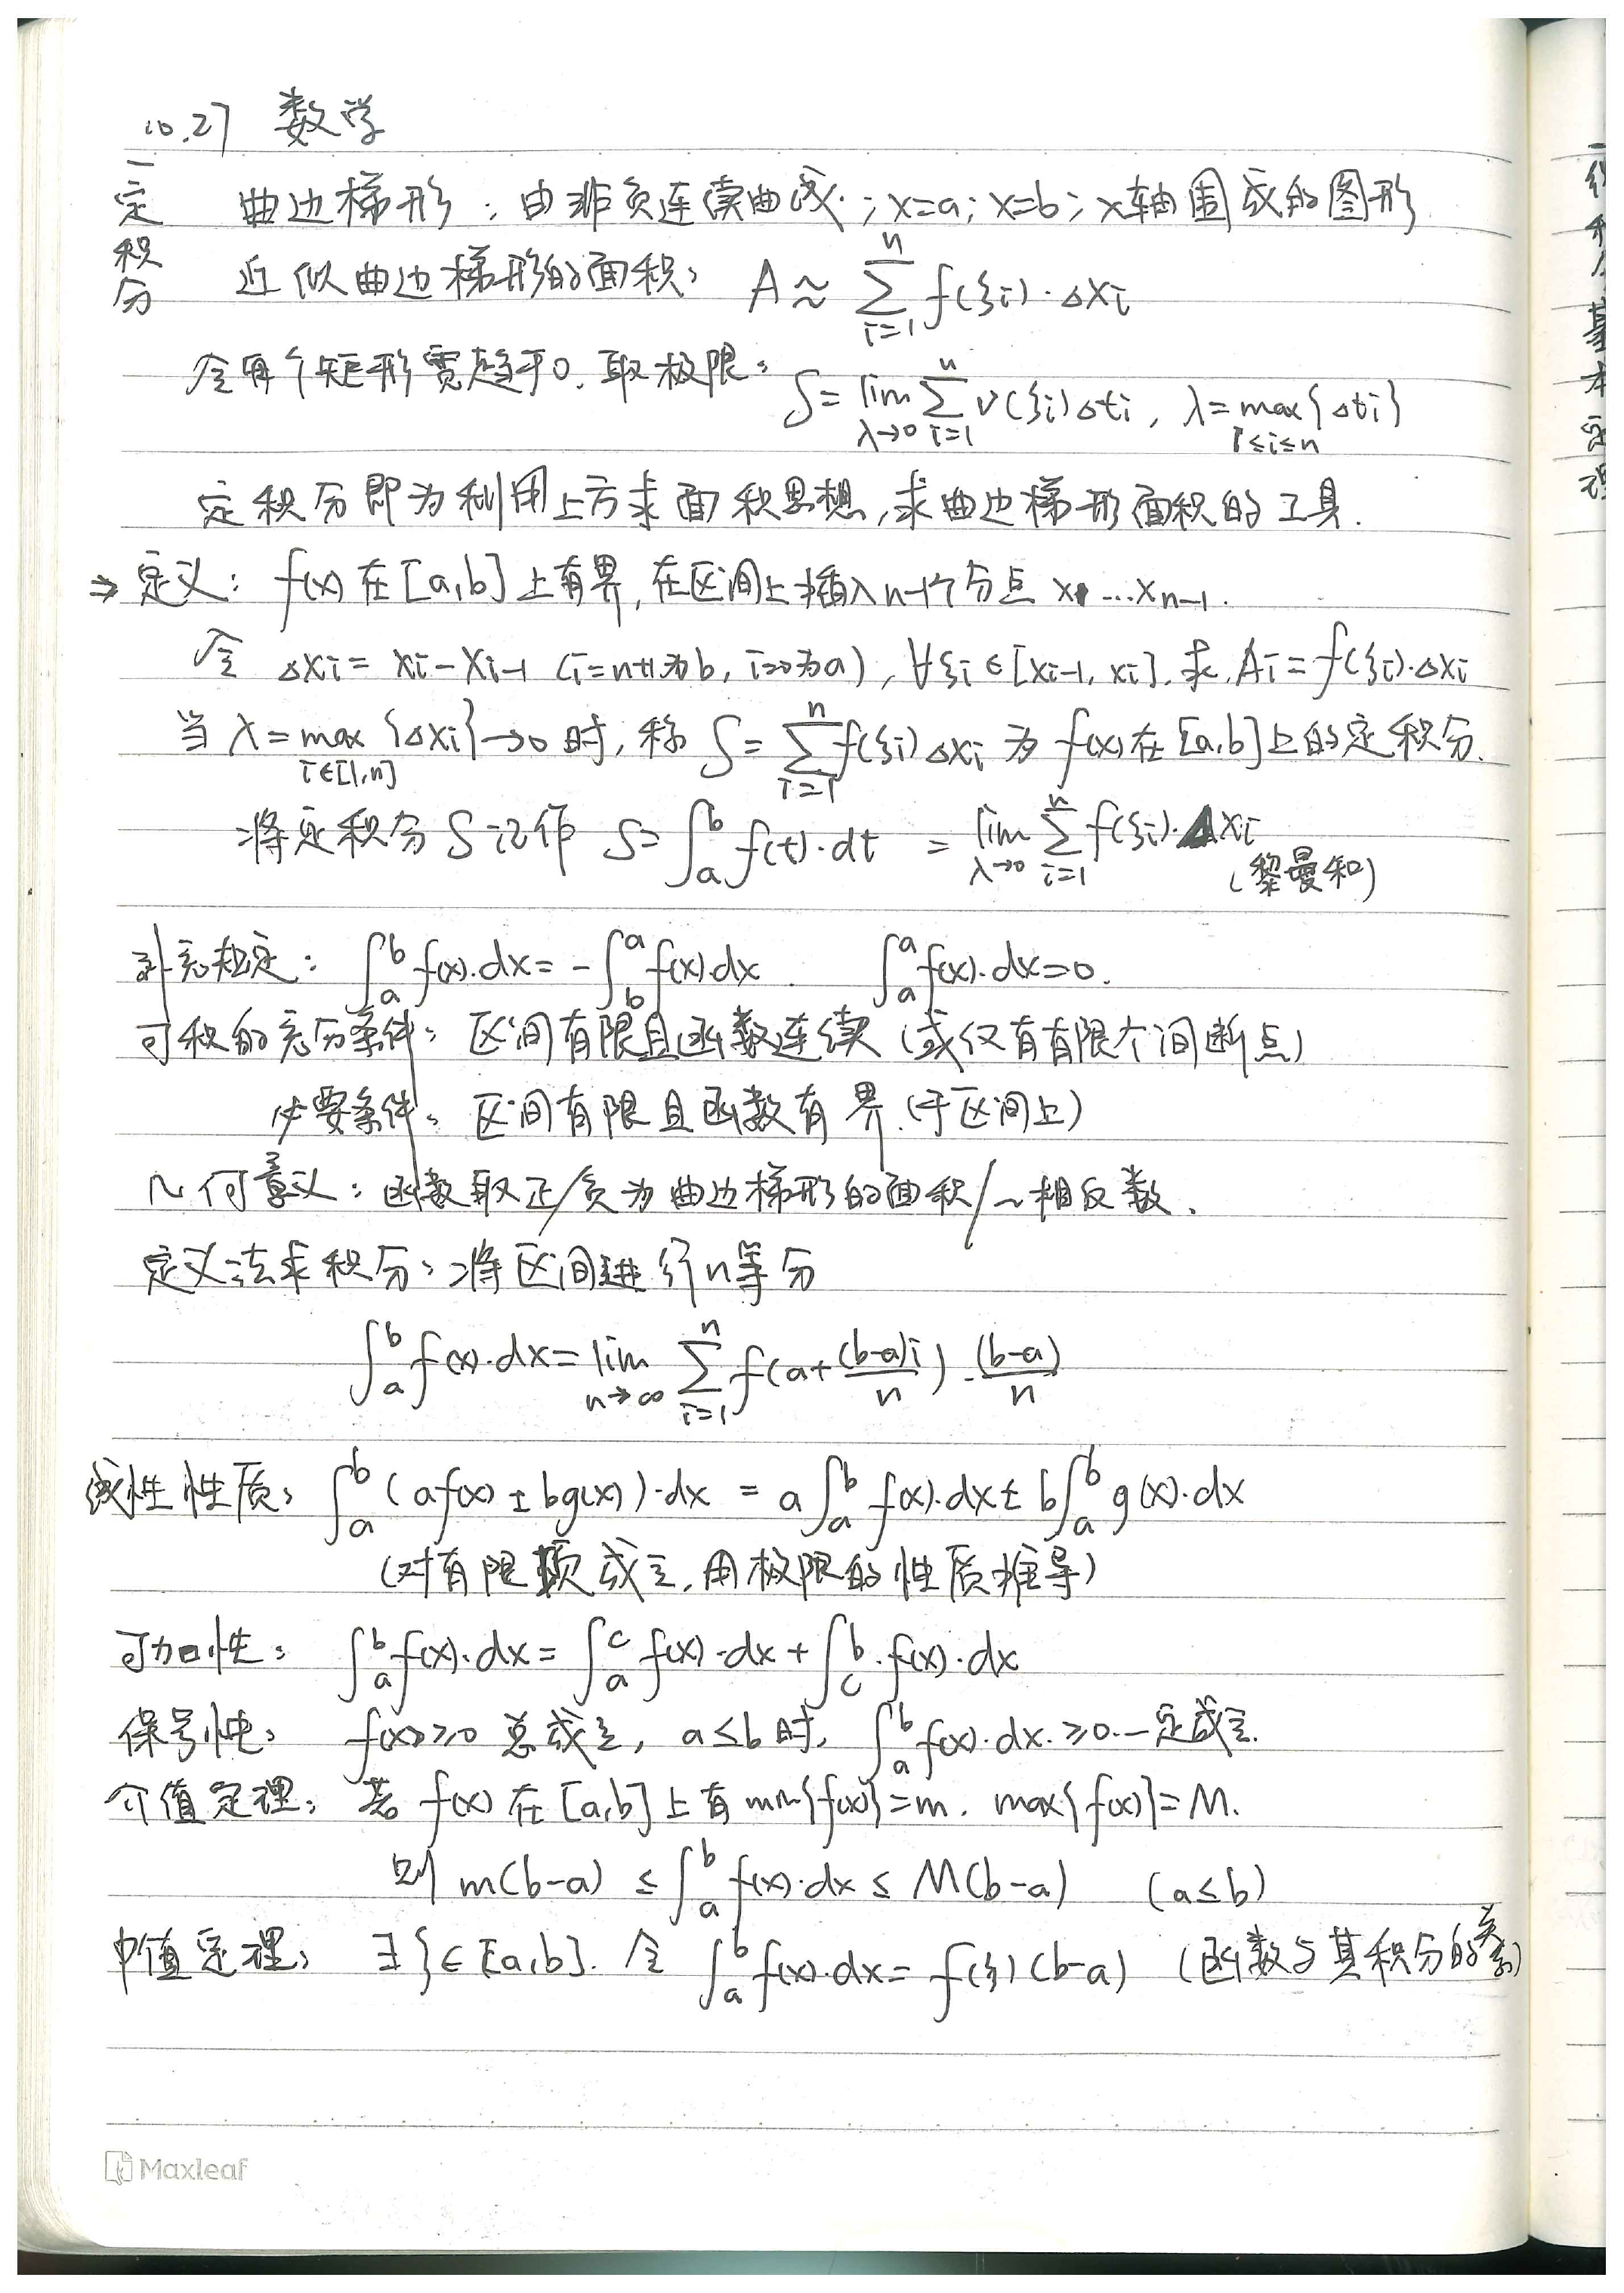 10.27 数学
一定积分
曲边梯形：由非负连续曲线；x=a；x=b；x轴围成的图形
近似曲边梯形的面积：A≈∑_{i=1}^{n} f(ξi)·Δxi
令每个矩形宽趋于0，取极限：S=lim_{λ→0} ∑_{i=1}^{n} v(ξi)Δti，λ=max_{1≤i≤n}{Δti}
定积分即为利用上方求面积思想，求曲边梯形面积的工具.
⇒ 定义：f(x)在[a,b]上有界，在区间上插入n-1个分点 x1…xn-1.
令 Δxi=xi-xi-1 (i=n+1为b, i=0为a)，∀ξi∈[xi-1, xi]，求Ai=f(ξi)·Δxi
当 λ=max_{i∈[1,n]}{Δxi}→0时，称 S=∑_{i=1}^{n} f(ξi)Δxi 为 f(x)在[a,b]上的定积分.
将定积分S记作 S=∫_a^b f(t)·dt = lim_{λ→0} ∑_{i=1}^{n} f(ξi)·Δxi
(黎曼和)
补充规定：∫_a^b f(x)·dx=-∫_b^a f(x)·dx. ∫_a^a f(x)·dx=0.
可积的充分条件：区间有限且函数连续（或仅有有限个间断点）
必要条件：区间有限且函数有界（于区间上）
几何意义：函数取正/负为曲边梯形的面积/~相反数.
定义法求积分：将区间进行n等分
∫_a^b f(x)·dx=lim_{n→∞} ∑_{i=1}^{n} f(a+(b-a)i/n)·(b-a)/n
线性性质：∫_a^b (af(x)±bg(x))·dx = a∫_a^b f(x)·dx±b∫_a^b g(x)·dx
(对有限项成立，用极限的性质推导)
可加性：∫_a^b f(x)·dx=∫_a^c f(x)·dx+∫_c^b f(x)·dx
保号性：f(x)≥0总成立，a≤b时，∫_a^b f(x)·dx≥0一定成立.
介值定理：若 f(x)在[a,b]上有min{f(x)}=m. max{f(x)}=M.
则 m(b-a)≤∫_a^b f(x)·dx≤M(b-a) (a≤b)
中值定理：∃ξ∈[a,b]. 令∫_a^b f(x)·dx=f(ξ)(b-a) (函数与其积分的关系)
Maxleaf